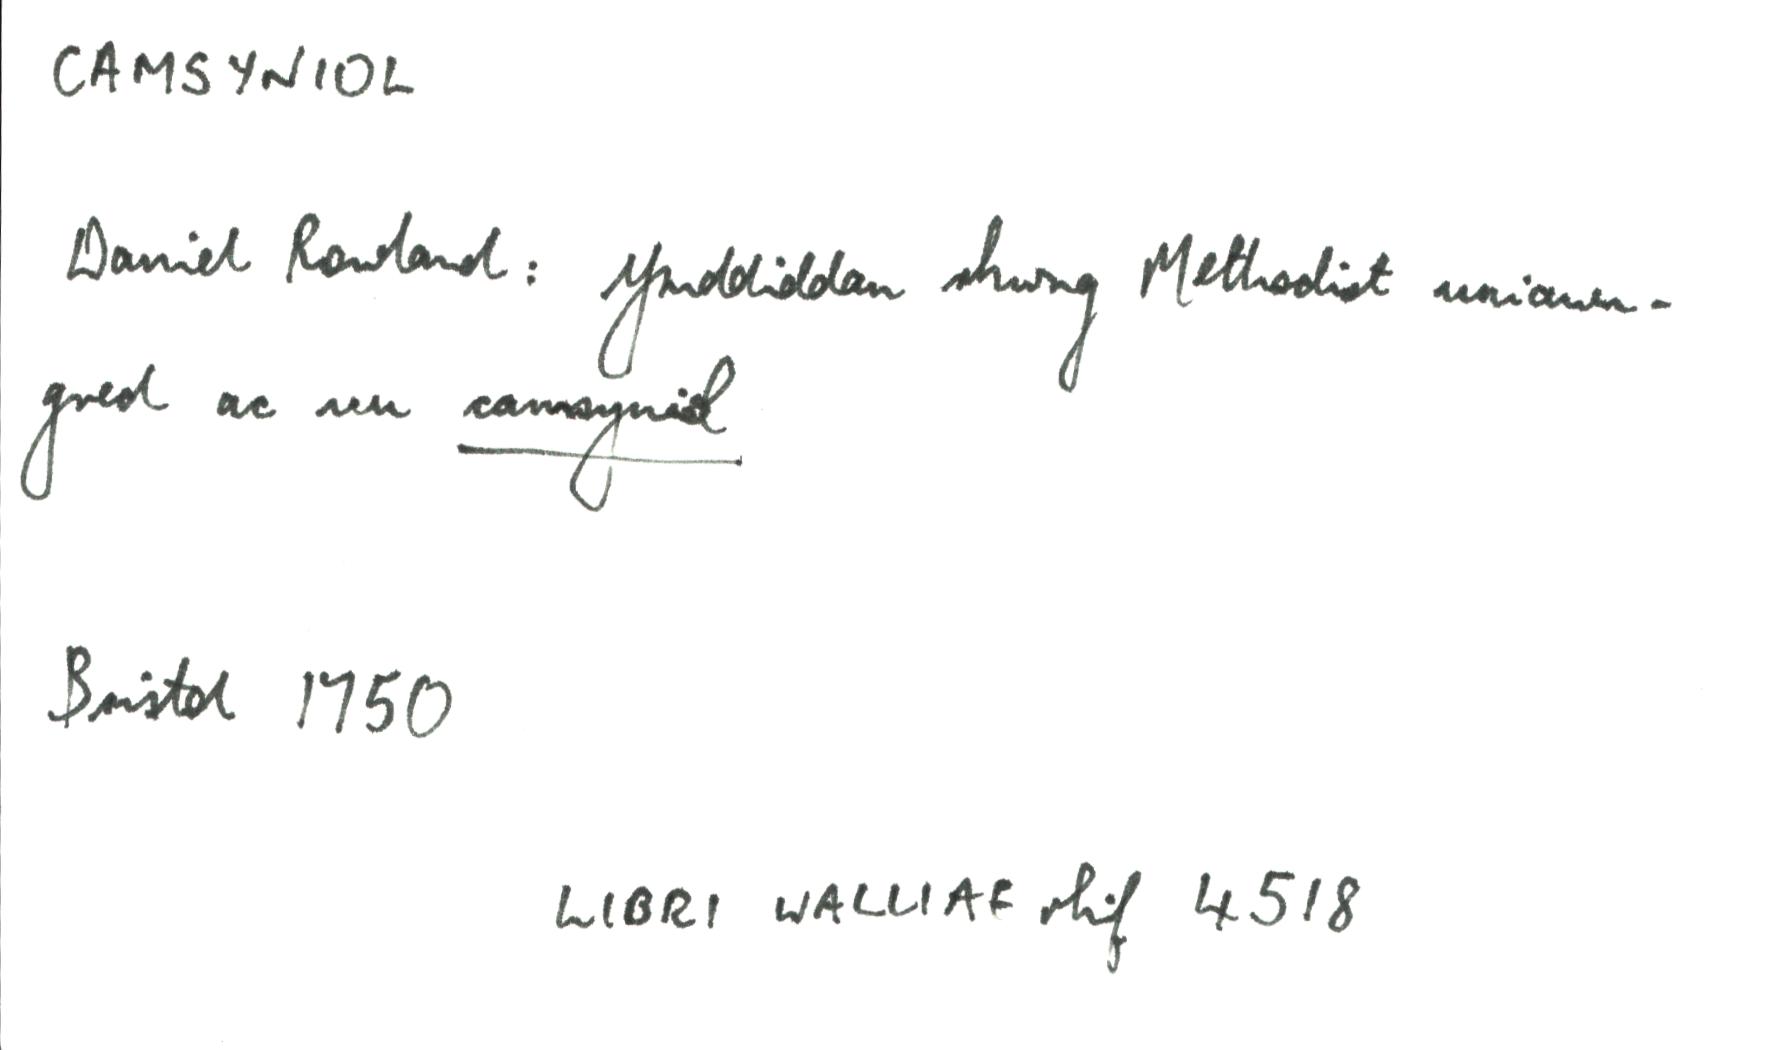 CAMSYNIOL
Daniel Rowland: Ymddiddan rhwng Methodist uniawn-
gred ac un camsyniol
Bristol 1750
LIBRI WALLIAE rhif 4518